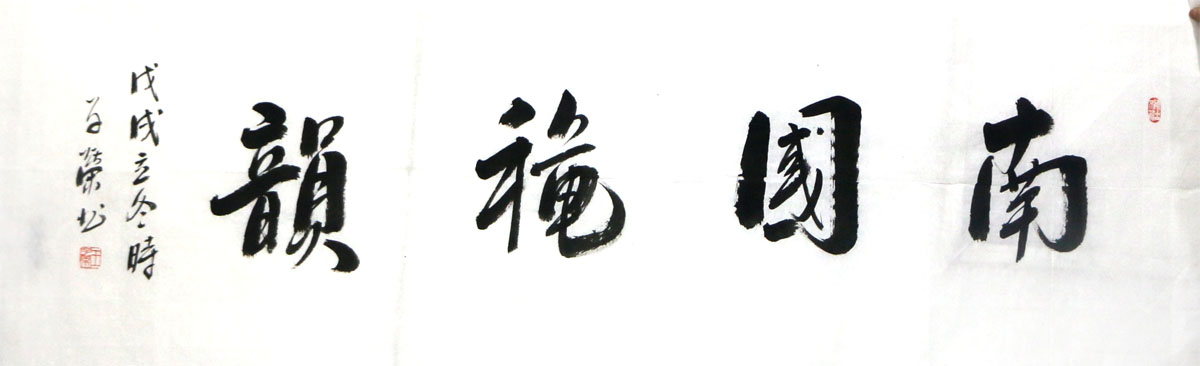 南國穐韻
戊戌立冬時
榮书